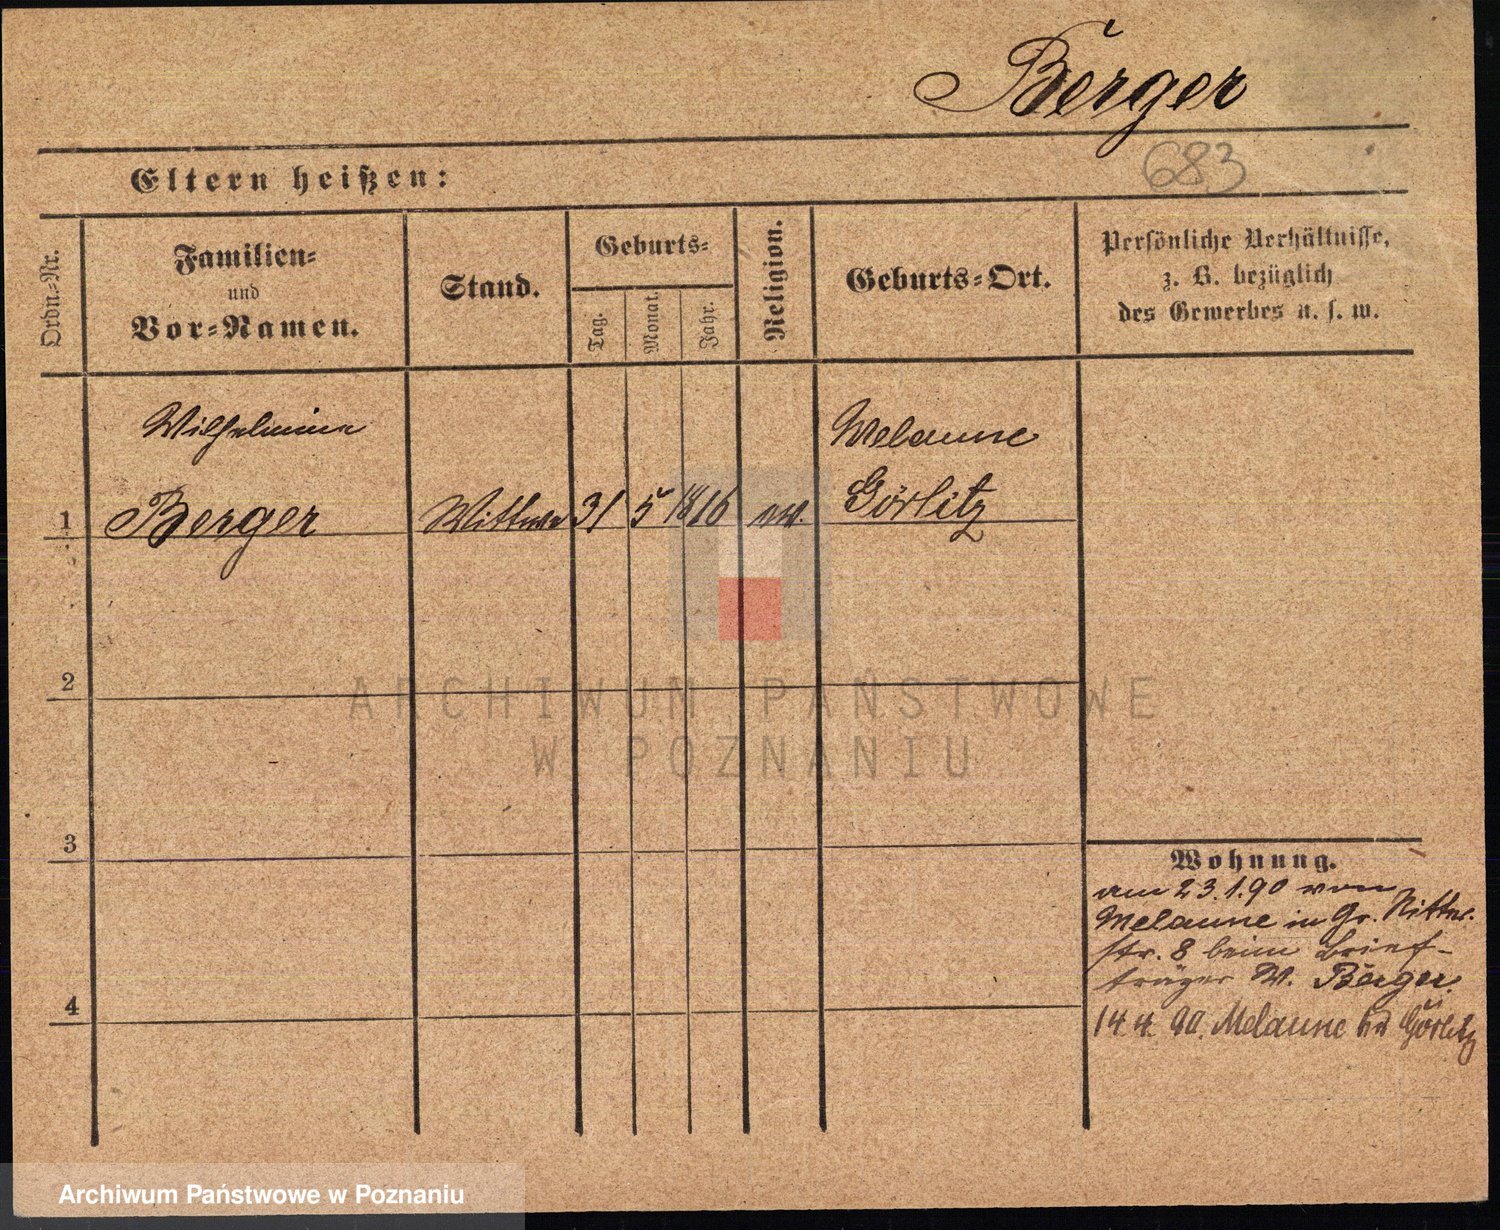 Berger
683
Eltern heißen:
Ordn.-Nr.
Familien-
und
Vor-Namen.
Stand.
Geburts-
Tag.
Monat.
Jahr.
Religion.
Geburts-Ort.
Persönliche Verhältnisse,
z. B. bezüglich
des Gewerbes u. s. w.
Wilhelmine
Melaune
1 Berger Wittwe 31 5 1816 ev. Görlitz
2
3
4
Wohnung.
am 23.1.90 von
Melaune in Gr. Ritter-
str. 8 beim Brief-
träger W. Berger.
14.4.90. Melaune Görlitz
ARCHIWUM PAŃSTWOWE
W POZNANIU
Archiwum Państwowe w Poznaniu